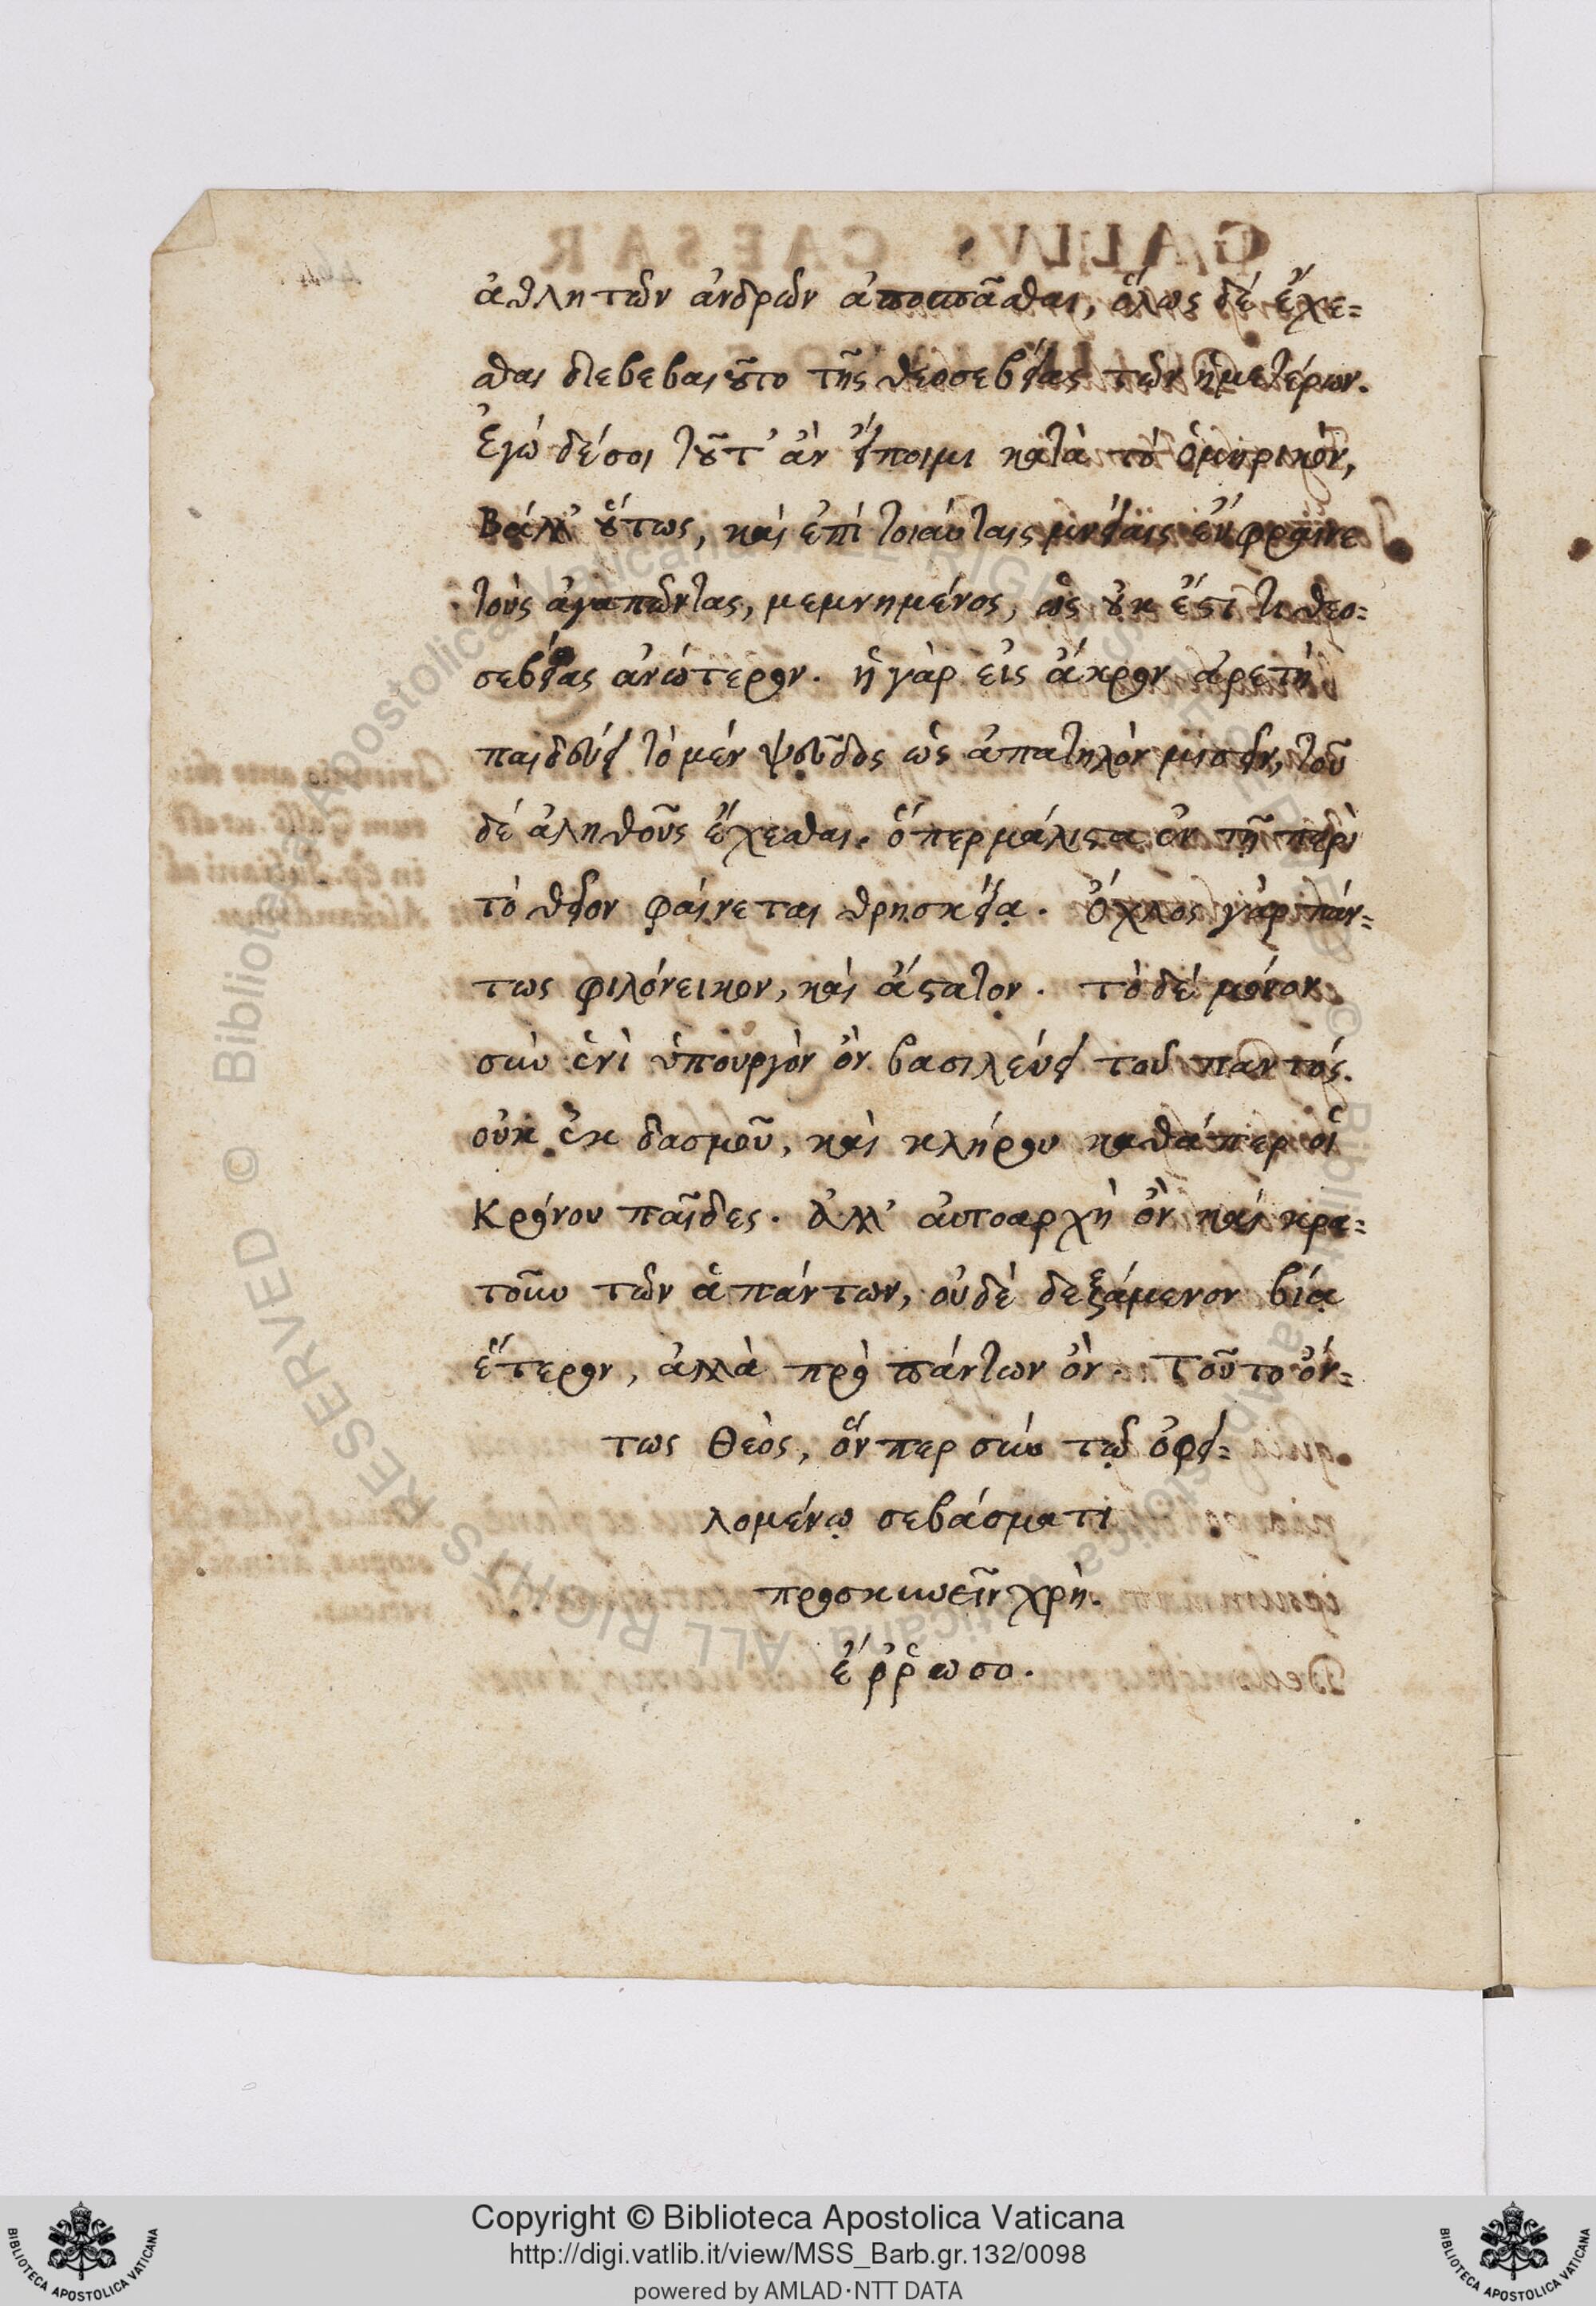 ἀθλητῶν ἀνδρῶν ἀποσπᾶσθαι, ὅλως δέ ἔχε=
σθαι διεβεβαιοῦτο τῆς θεοσεβείας τῶν ἡμετέρων.
Ἐγώ δέ σοι τοῦτ' ἀν είποιμι κατὰ τό ὁμηρικόν,
Βάλλ' οὕτως, καὶ ἐπί τοιάυταις μνείαις ἐύφραινε
τοὺς ἀγαπῶντας, μεμνημένος, ὡς οὐκ ἔστι τι θεο=
σεβείας ἀνώτερον. ἡ γὰρ εἰς ἄκρον ἀρετὴ
παιδεύει τὸ μέν ψεῦδος ὡς ἀπατηλὸν μισεῖν, τοῦ
δέ ἀληθοῦς ἔχεσθαι. ὅπερ μάλιστα ἐν τῇ περὶ
τὸ θεῖον φαίνεται θρησκείᾳ. Ὄχλος γὰρ πάν=
τως φιλόνεικον, καὶ ἄστατον. τὸ δέ μόνον
σὺν ἑνὶ ὑπουργὸν ὂν βασιλεύει τοῦ παντός.
οὐκ ἐκ δασμοῦ, καὶ κλήρου καθάπερ οἱ
Κρόνου παῖδες. ἀλλ' ἀυτοαρχὴ ὂν καὶ κρα=
τοῦν τῶν ἁπάντων, οὐδὲ δεξάμενον βίᾳ
ἕτερον, ἀλλὰ πρὸ πάντων ὂν. Τοῦτο ὄν=
τως Θεὸς, ὅνπερ σὺν τῷ ὀφει=
λομένῳ σεβάσματι
προσκυνεῖν χρὴ.
ἔῤῥωσο.
GALLVS CAESAR
Copyright © Biblioteca Apostolica Vaticana
http://digi.vatlib.it/view/MSS_Barb.gr.132/0098
powered by AMLAD·NTT DATA
BIBLIOTECA APOSTOLICA VATICANA
BIBLIOTECA APOSTOLICA VATICANA